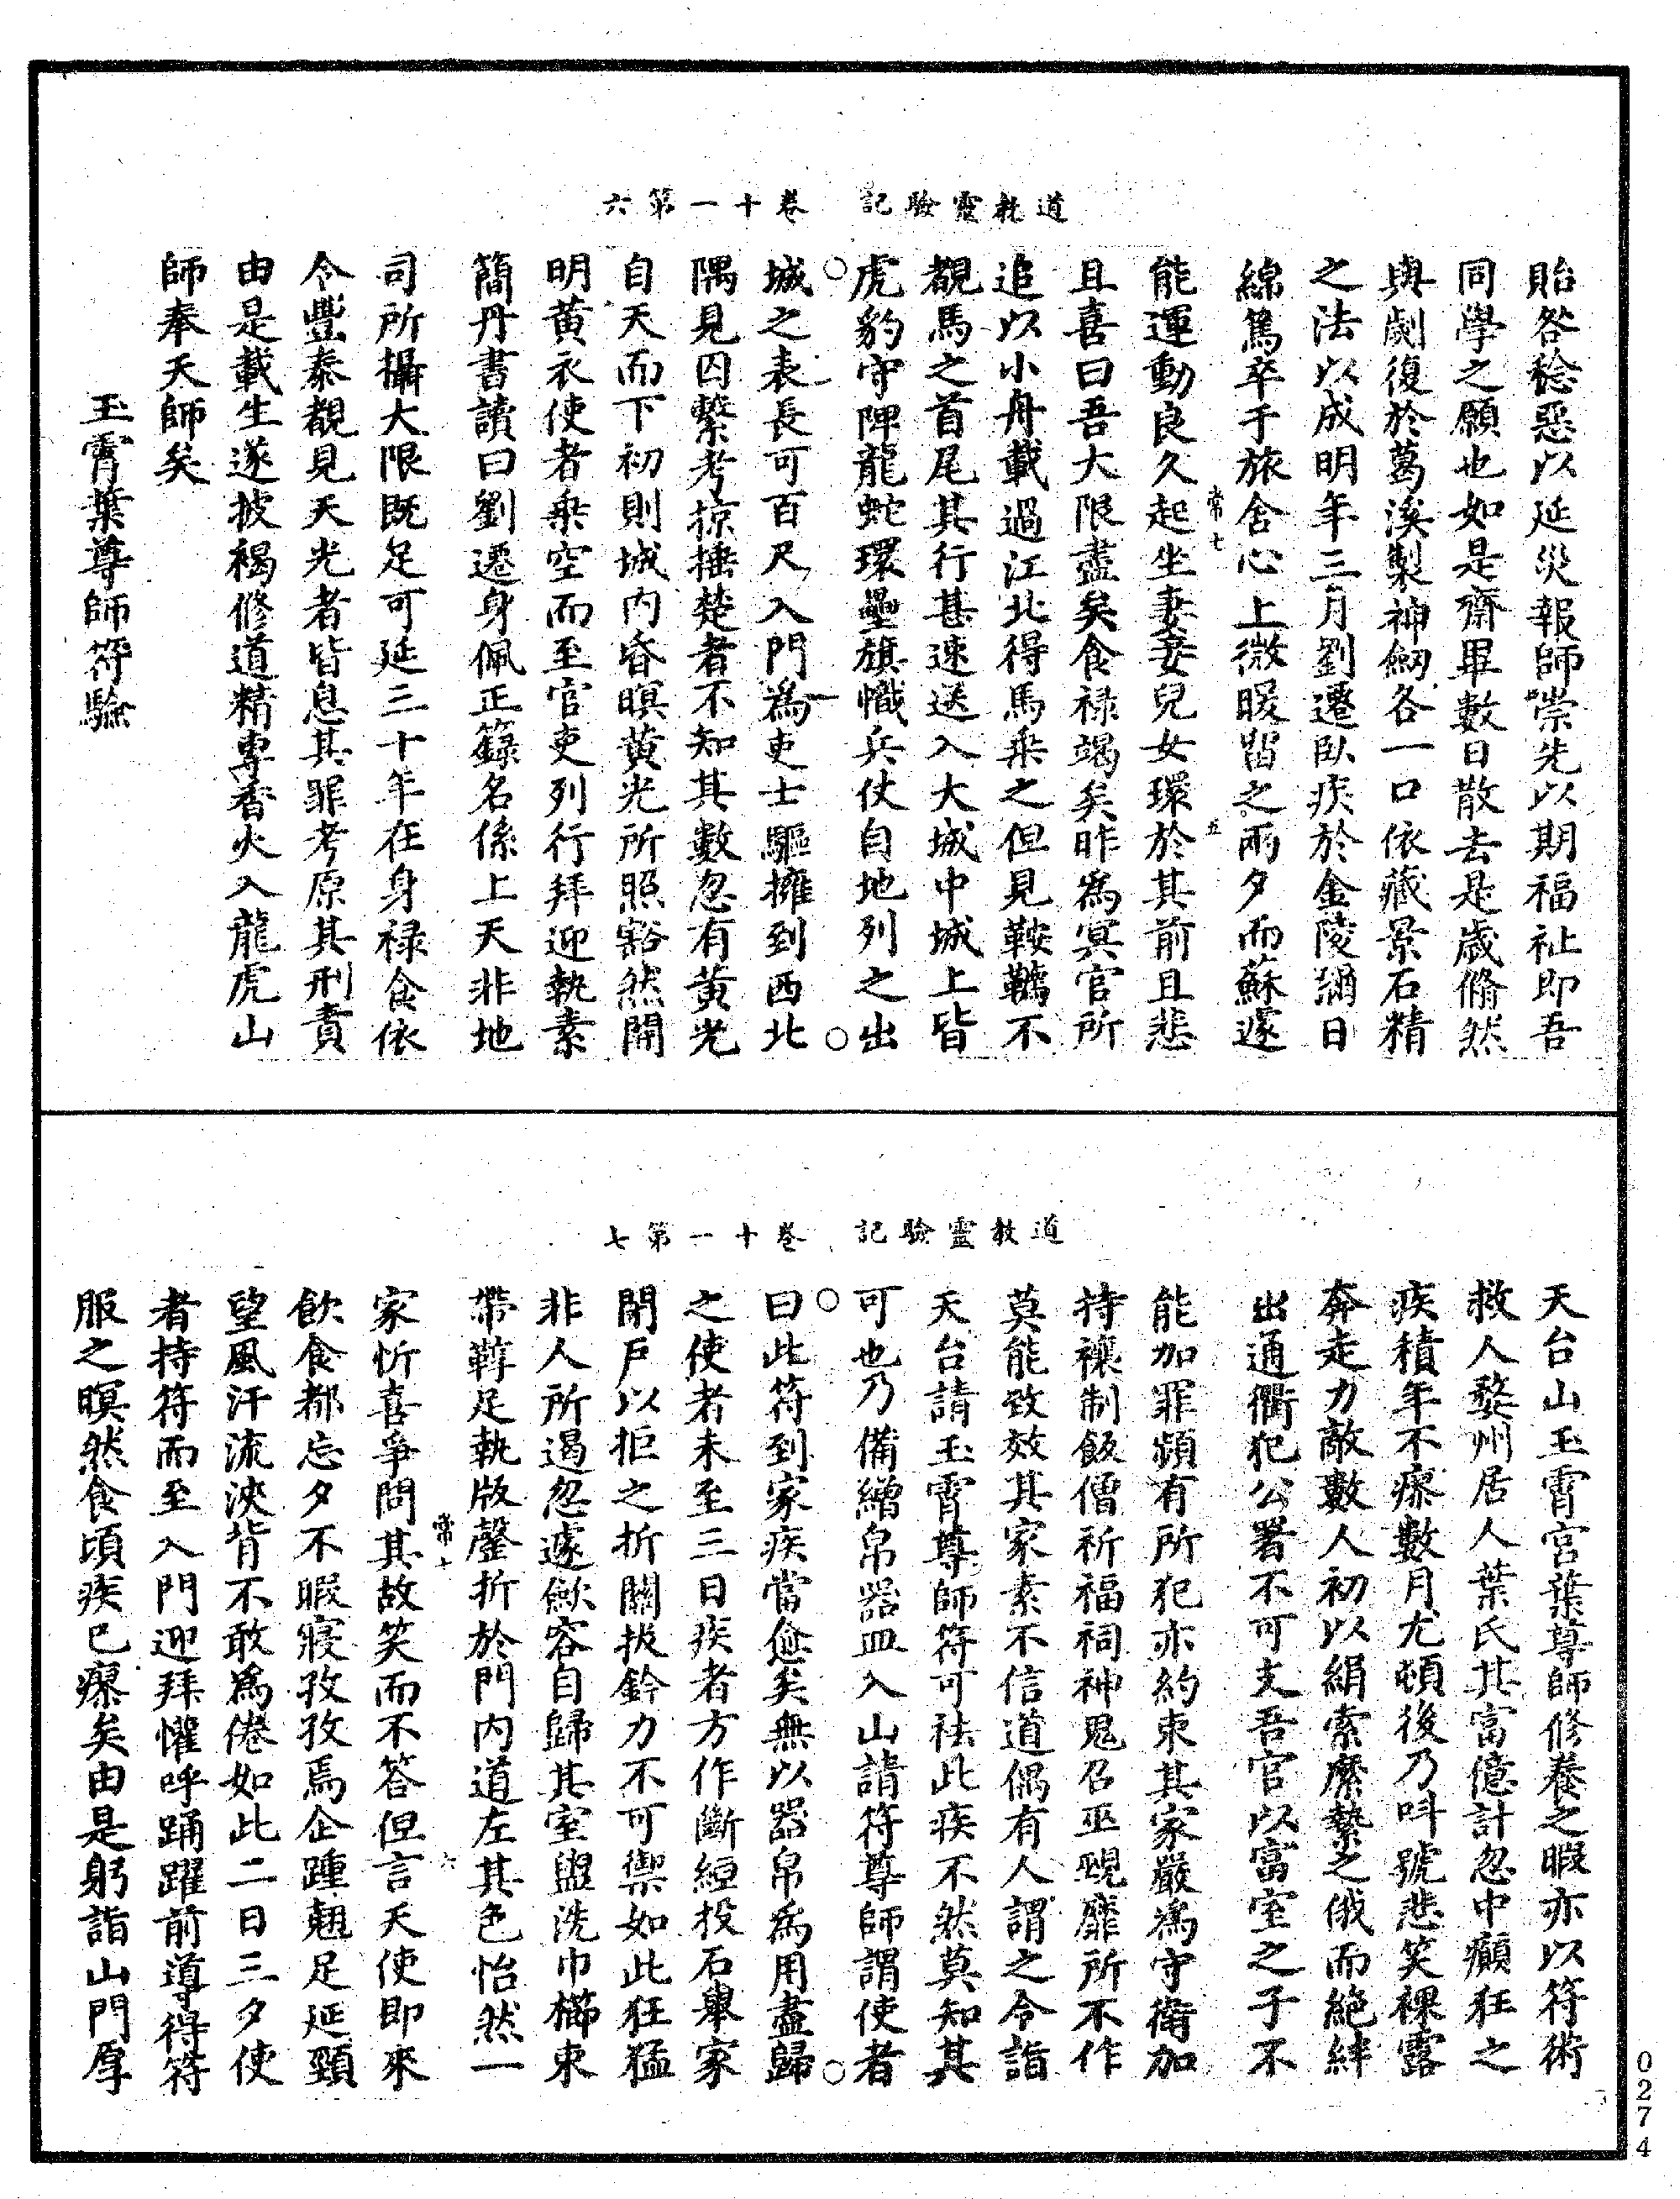 道教靈驗記　卷十一第六
貽咎稔惡以延災報師崇先以期福祉即吾
同學之願也如是齋畢數日散去是歲翛然
與劇復於葛溪製神劒各一口依藏景石精
之法以成明年三月劉遷臥疾於金陵彌日
綿篤卒于旅舍心上微暖留之兩夕而蘇遽
常七
五
能運動良久起坐妻妾兒女環於其前且悲
且喜曰吾大限盡矣食祿竭矣昨為冥官所
追以小舟載過江北得馬乘之但見鞍韉不
覩馬之首尾其行甚速送入大城中城上皆
虎豹守陴龍蛇環壘旗幟兵仗自地列之出
城之表長可百尺入門為吏士驅擁到西北
隅見囚繫考掠捶楚者不知其數忽有黃光
自天而下初則城內昏暝黃光所照豁然開
明黃衣使者乘空而至官吏列行拜迎執素
簡丹書讀曰劉遷身佩正籙名係上天非地
司所攝大限既足可延三十年在身祿食依
令豐泰覩見天光者皆息其罪考原其刑責
由是載生遂披褐修道精專香火入龍虎山
師奉天師矣
玉霄葉尊師符驗
道教靈驗記　卷十一第七
天台山玉霄宮葉尊師修養之暇亦以符術
救人婺州居人葉氏其富億計忽中癲狂之
疾積年不瘳數月尤頓後乃叫號悲笑裸露
奔走力敵數人初以絹索縻縶之俄而絕絆
出通衢犯公署不可支吾官以富室之子不
能加罪頻有所犯亦約束其家嚴為守衛加
持禳制飯僧祈福祠神鬼召巫覡靡所不作
莫能致效其家素不信道偶有人謂之令詣
天台請玉霄尊師符可祛此疾不然莫知其
可也乃備繒帛器皿入山請符尊師謂使者
曰此符到家疾當愈矣無以器帛為用盡歸
之使者未至三日疾者方作斷絙投石舉家
閉戶以拒之折關拔鈐力不可禦如此狂猛
非人所遏忽遽歛容自歸其室盥洗巾櫛束
帶鞾足執版磬折於門內道左其色怡然一
家忻喜爭問其故笑而不答但言天使即來
常十
六
飲食都忘夕不暇寢孜孜焉企踵翹足延頸
望風汗流浹背不敢為倦如此二日三夕使
者持符而至入門迎拜懽呼踊躍前導得符
服之暝然食頃疾已瘳矣由是躬詣山門厚
0274